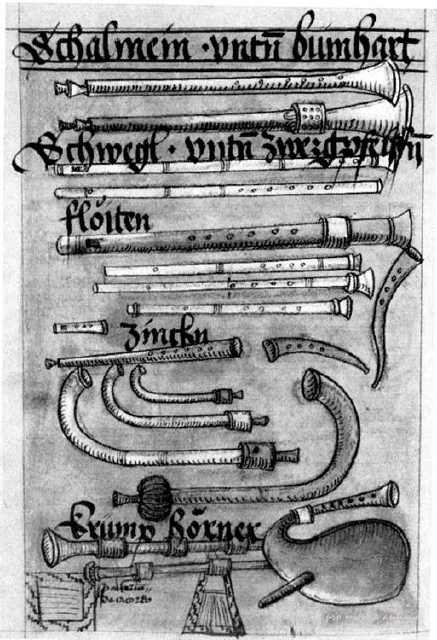 Schalmein · vntñ bumhart
Schwegl · vntñ zwerchpfeiffñ
flöiten
zinckn
krump hörner